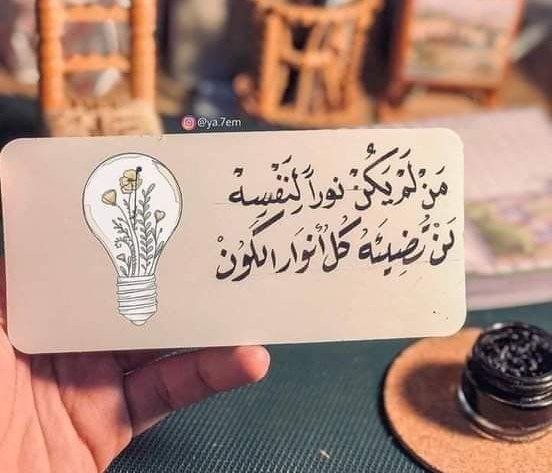 @ya.7em
مَنْ لَمْ يَكُنْ نوراً لِنَفْسِهْ
لَنْ تُضِيئَهُ كُلُ أنوَار الكَونْ